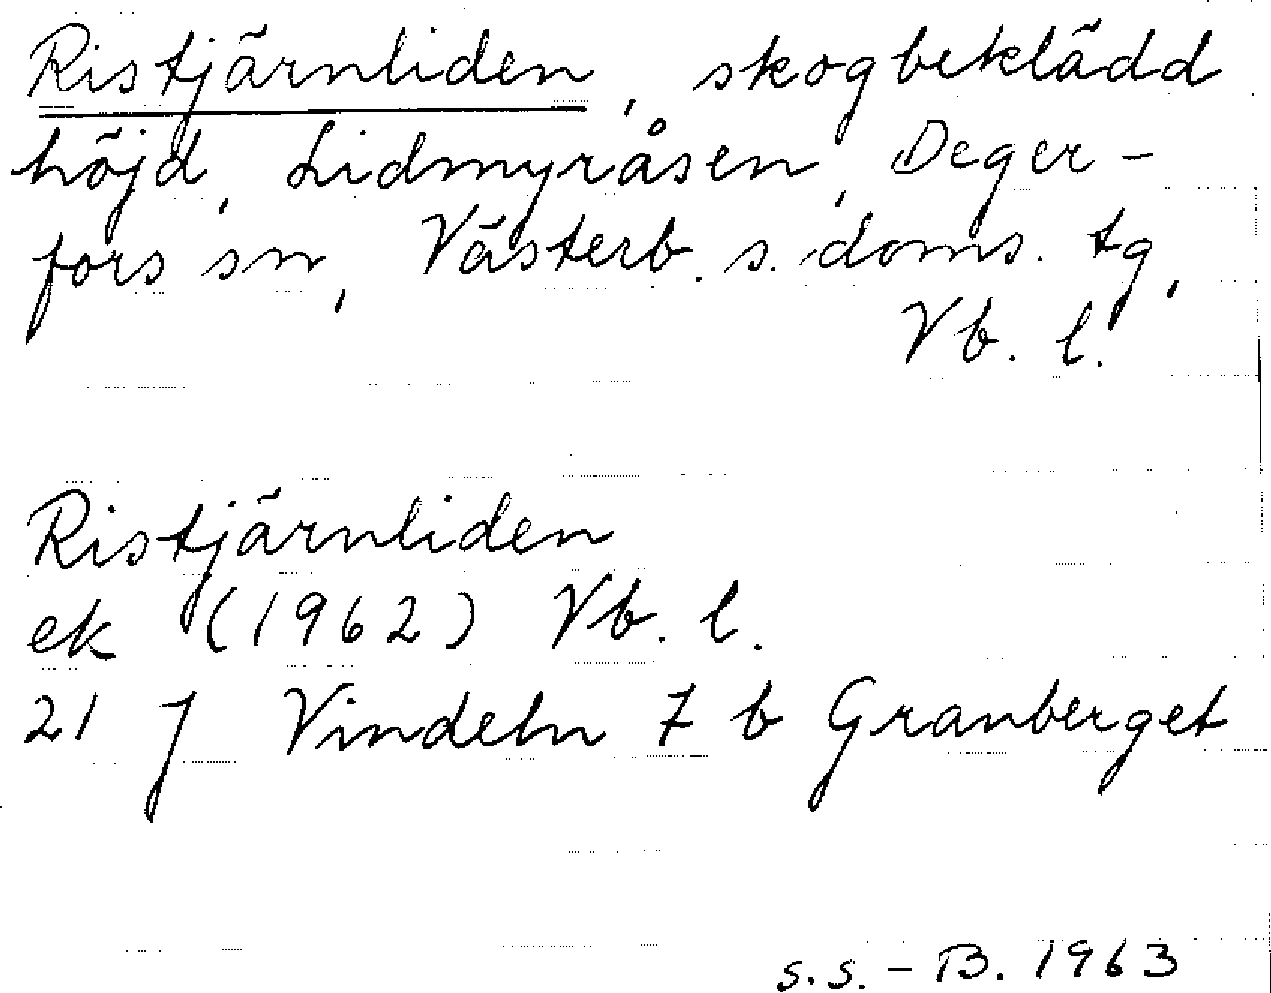 Ristjärnliden, skogbeklädd
höjd, Lidmyråsen, Deger-
fors sn, Västerb. s. doms. tg,
Vb. l.
Ristjärnliden
ek (1962) Vb. l.
21 J Vindeln 7 b Granberget
s.s. - B. 1963